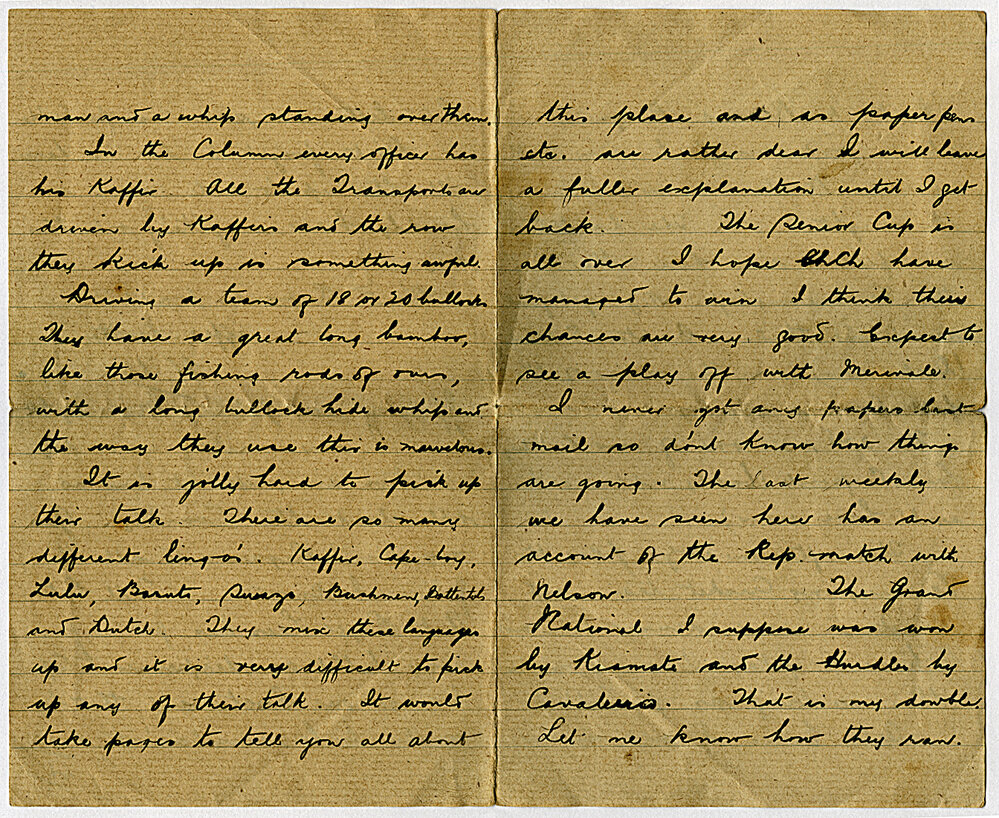 man and a whip standing over them.
In the Column every officer has
his Kaffir. All the Transports are
driven by Kaffirs and the row
they kick up is something awful.
Driving a team of 18 or 20 bullocks
They have a great long bamboo,
like those fishing rods of ours,
with a long bullock hide whip and
the way they use this is marvelous.
It is jolly hard to pick up
their talk. There are so many
different lingo's. Kaffir, Cape-boy,
Zulu, Basuto, Swazo, Bushmen, Hottentots
and Dutch. They mix these languages
up and it is very difficult to pick
up any of their talk. It would
take pages to tell you all about
this place and as paper pens
etc. are rather dear I will leave
a fuller explanation until I get
back. The Senior Cup is
all over I hope ChCh have
managed to win I think their
chances are very good. Expect to
see a play off with Merivale.
I never got any papers last
mail so dont know how things
are going. The last weekly
we have seen here has an
account of the Rep. match with
Nelson. The Grand
National I suppose was won
by Kiamate and the Hurdles by
That is my double.
Let me know how they ran.